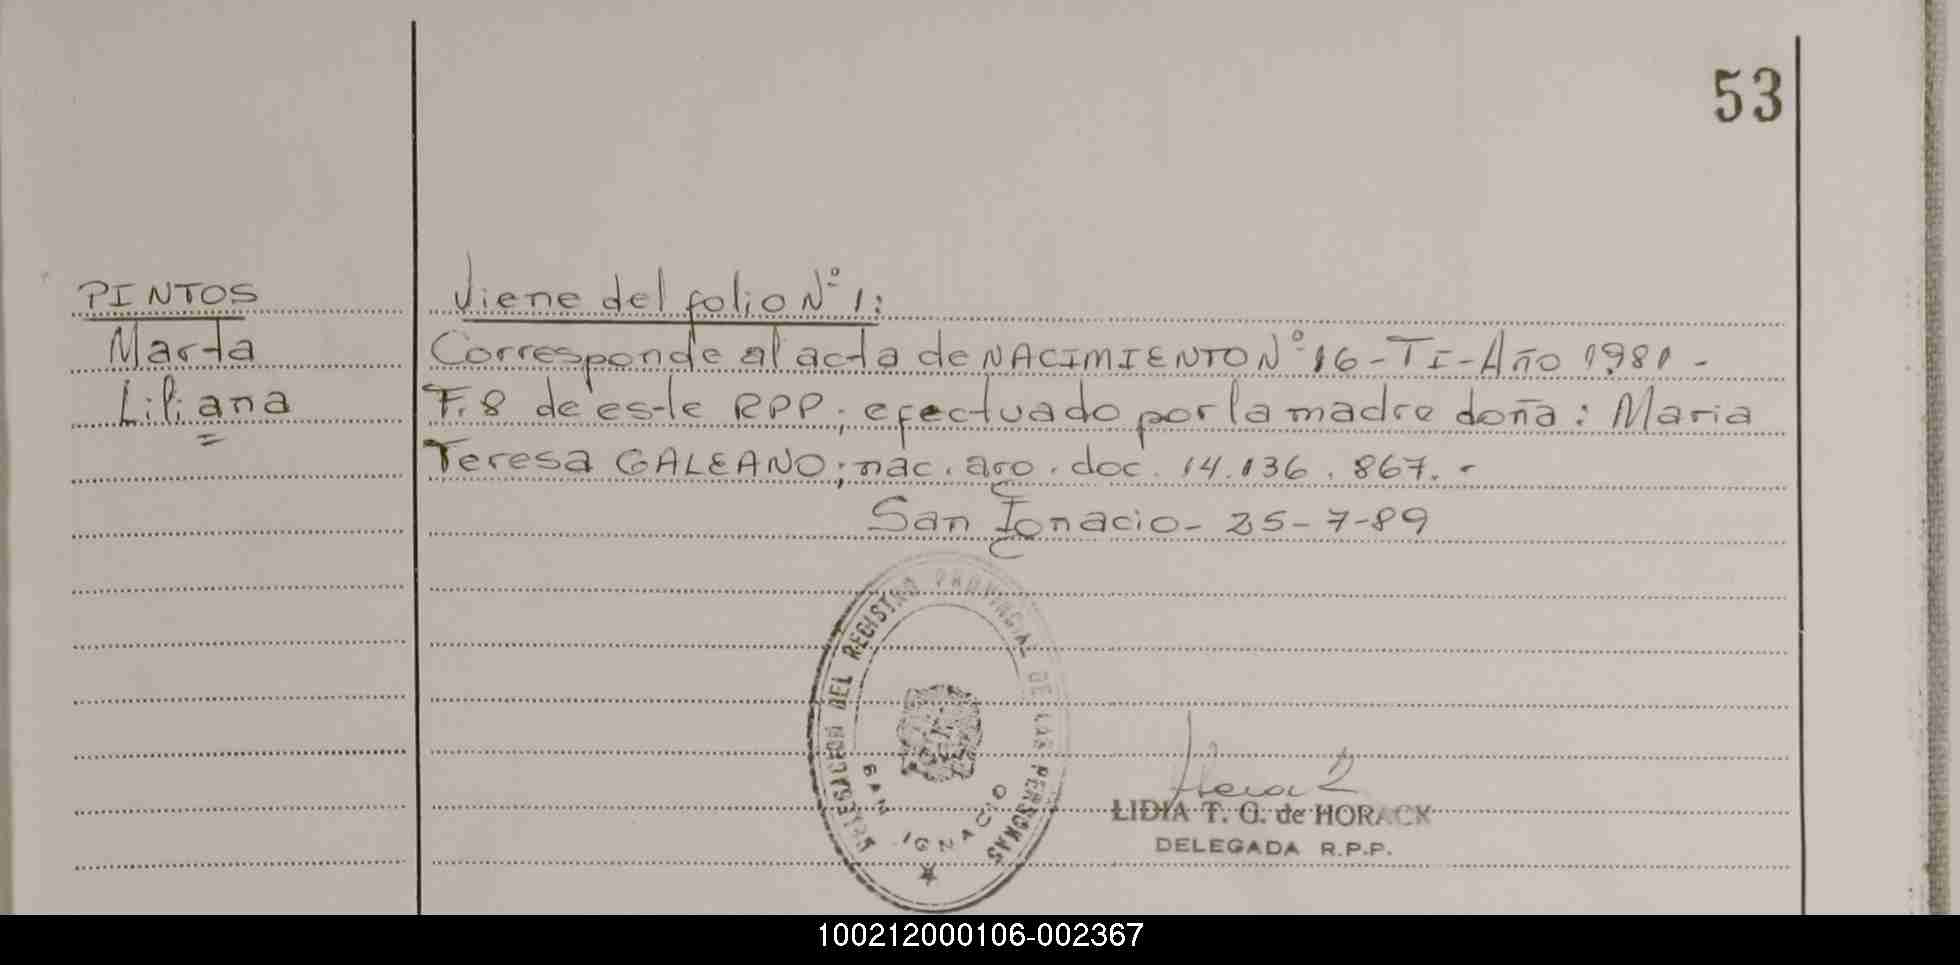 53
PINTOS
Marta
Liliana
Viene del folio N° 1:
Corresponde al acta de NACIMIENTO N° 16 - TI - Año 1981 -
F. 8 de este RPP; efectuado por la madre doña: Maria
Teresa GALEANO; nac. arg. doc. 14.136.867. -
San Ignacio - 25-7-89
DELEGACION DEL REGISTRO PROVINCIAL DE LAS PERSONAS
SAN IGNACIO
LIDIA T. G. de HORACK
DELEGADA R.P.P.
100212000106-002367